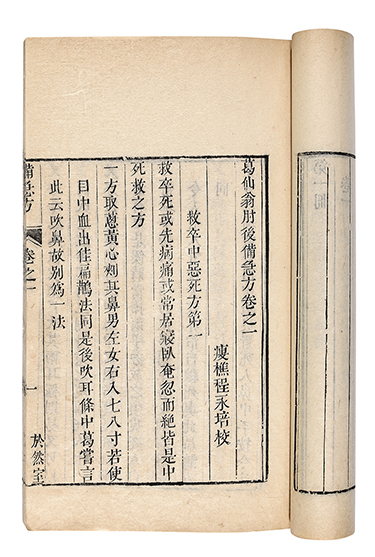 葛仙翁肘後備急方卷之一
瘦樵程永培校
救卒中惡死方第一
救卒死或先病痛或常居寢臥奄忽而絕皆是中
死救之方
一方取蔥黃心刺其鼻男左女右入七八寸若使
目中血出佳扁鵲法同是後吹耳條中葛嘗言
此云吹鼻故別為一法
備急方
卷之一
一
於然室